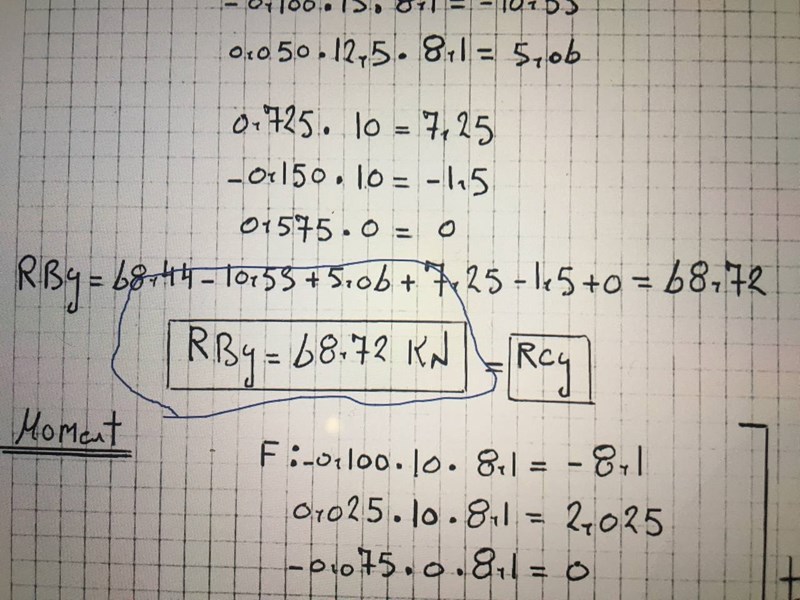 -0,100.13.8,1 = -10,53
0,050.12,5.8,1 = 5,06
0,725.10 = 7,25
-0,150.10 = -1,5
0,575.0 = 0
RBy = 68,44 - 10,53 + 5,06 + 7,25 - 1,5 + 0 = 68,72
RBy = 68,72 KN = RCy
Moment
F: -0,100.10.8,1 = -8,1
0,025.10.8,1 = 2,025
-0,075.0.8,1 = 0